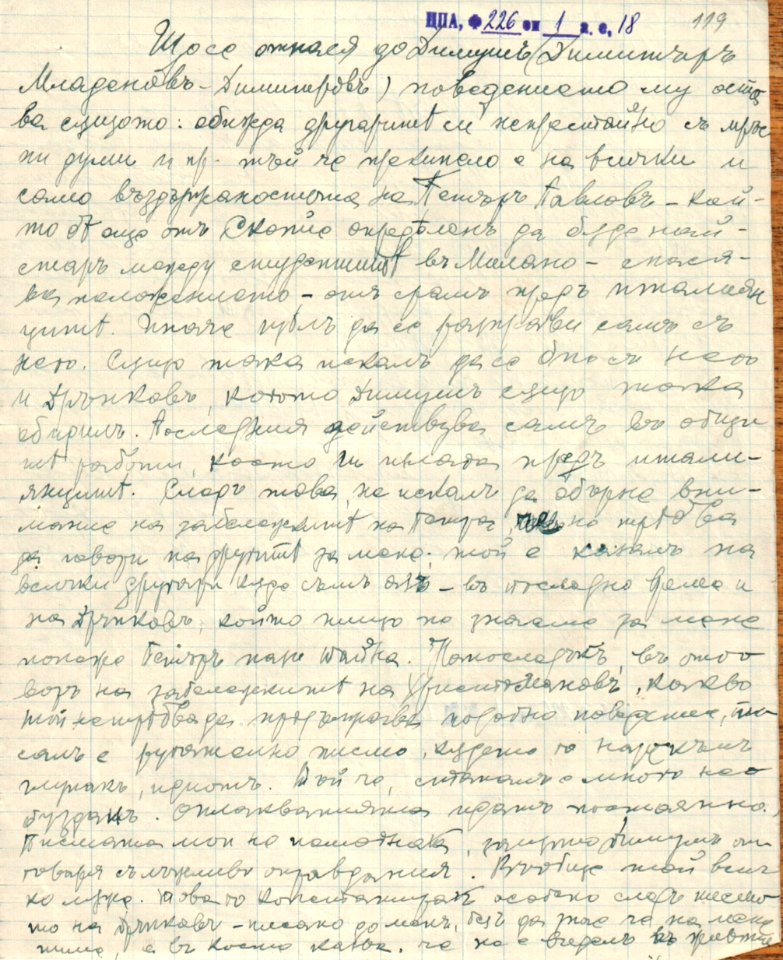 ЦПА, Ф 226 оп 1 а. е. 18 119
Що се отнася до Димушъ (Димитъръ
Младеновъ-Димитровъ) поведението му оста
ва същото: обижда другаритѣ си непрестайно съ мръс
ни думи и пр. тъй че прекипело е на всички и
само въздържаностьта на Петъръ Павловъ – кой-
то бѣ още отъ Скопие опредѣленъ да бѫде най-
старъ между студентитѣ въ Милано – спася-
ва положението – отъ срамъ предъ италиян
цитѣ. Иначе да се разправи самъ съ
него. Също така искалъ да се бие съ него
и Дрънковъ, когото Димушъ също така
обидилъ. Последния действува самъ въ общи
тѣ работи, което ги излага предъ итали-
янцитѣ. Следъ това, не искалъ да обърне вни-
мание на забележкитѣ на Петра, че не трѣбва
да говори на другитѣ за мене; той е казалъ на
всички другари кѫде съмъ азъ – въ последно време и
на Дрънковъ, който нищо не знаеше за мене
понеже Петъръ пази тайна. Напоследъкъ, въ отго
воръ на забележкитѣ на Христо Мановъ, какво
той не трѣбва да продължава подобно поведение, пи
салъ е ругателно писмо, кѫдето го наричалъ
глупакъ, идиотъ. Тъй че, станалъ е много нео
бузданъ. Оплакванията идатъ постоянно.
Писмата ми не помагатъ, защото Димушъ от
говаря съ лъжливи оправдания. Въобще той всич
ко лъже. Това го констатирахъ особено следъ писмо
то на Дрънковъ – писано до менъ, безъ да знае че на мене
пише, въ което казва, че не е